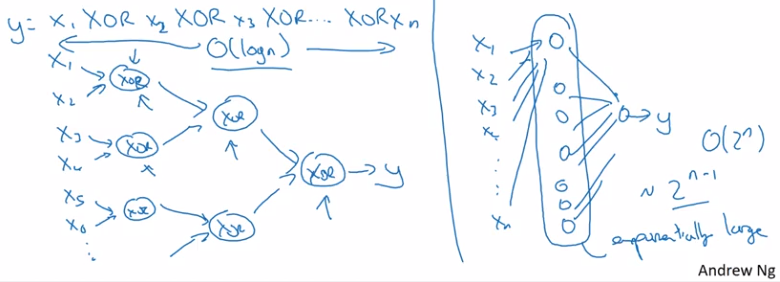 y = x₁ XOR x₂ XOR x₃ XOR .... XOR xₙ
O(log n)
x₁
x₂
XOR
XOR
x₃
x₄
XOR
XOR
y
x₅
x₆
XOR
XOR
⋮
x₁
x₂
x₃
x₄
⋮
xₙ
y
O(2ⁿ)
~ 2ⁿ⁻¹
exponentially large
Andrew Ng